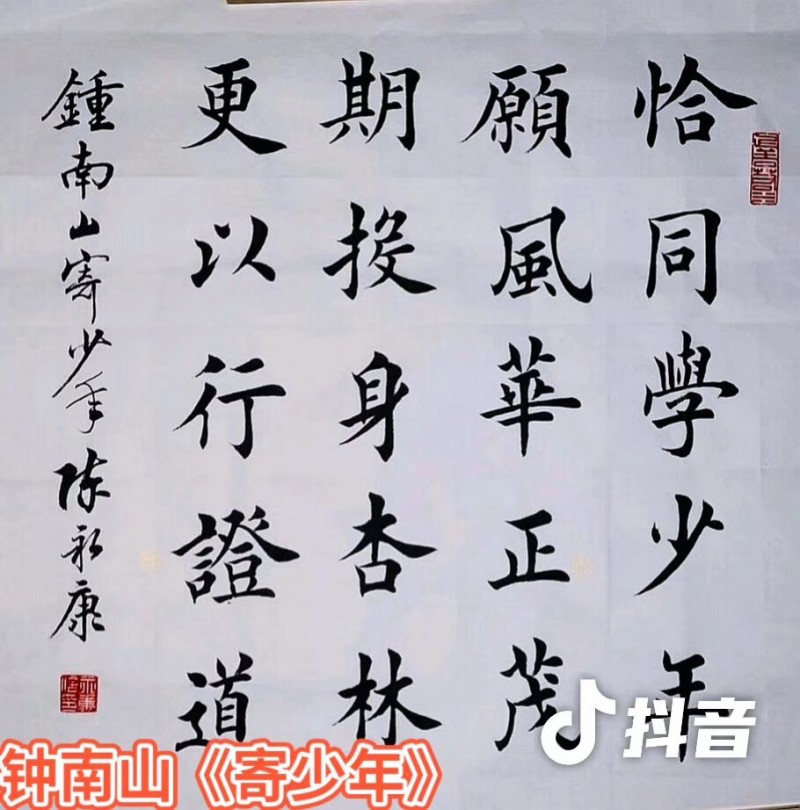 恰同學少年
願風華正茂
期投身杏林
更以行證道
鍾南山寄少年 陈永康
钟南山《寄少年》
抖音